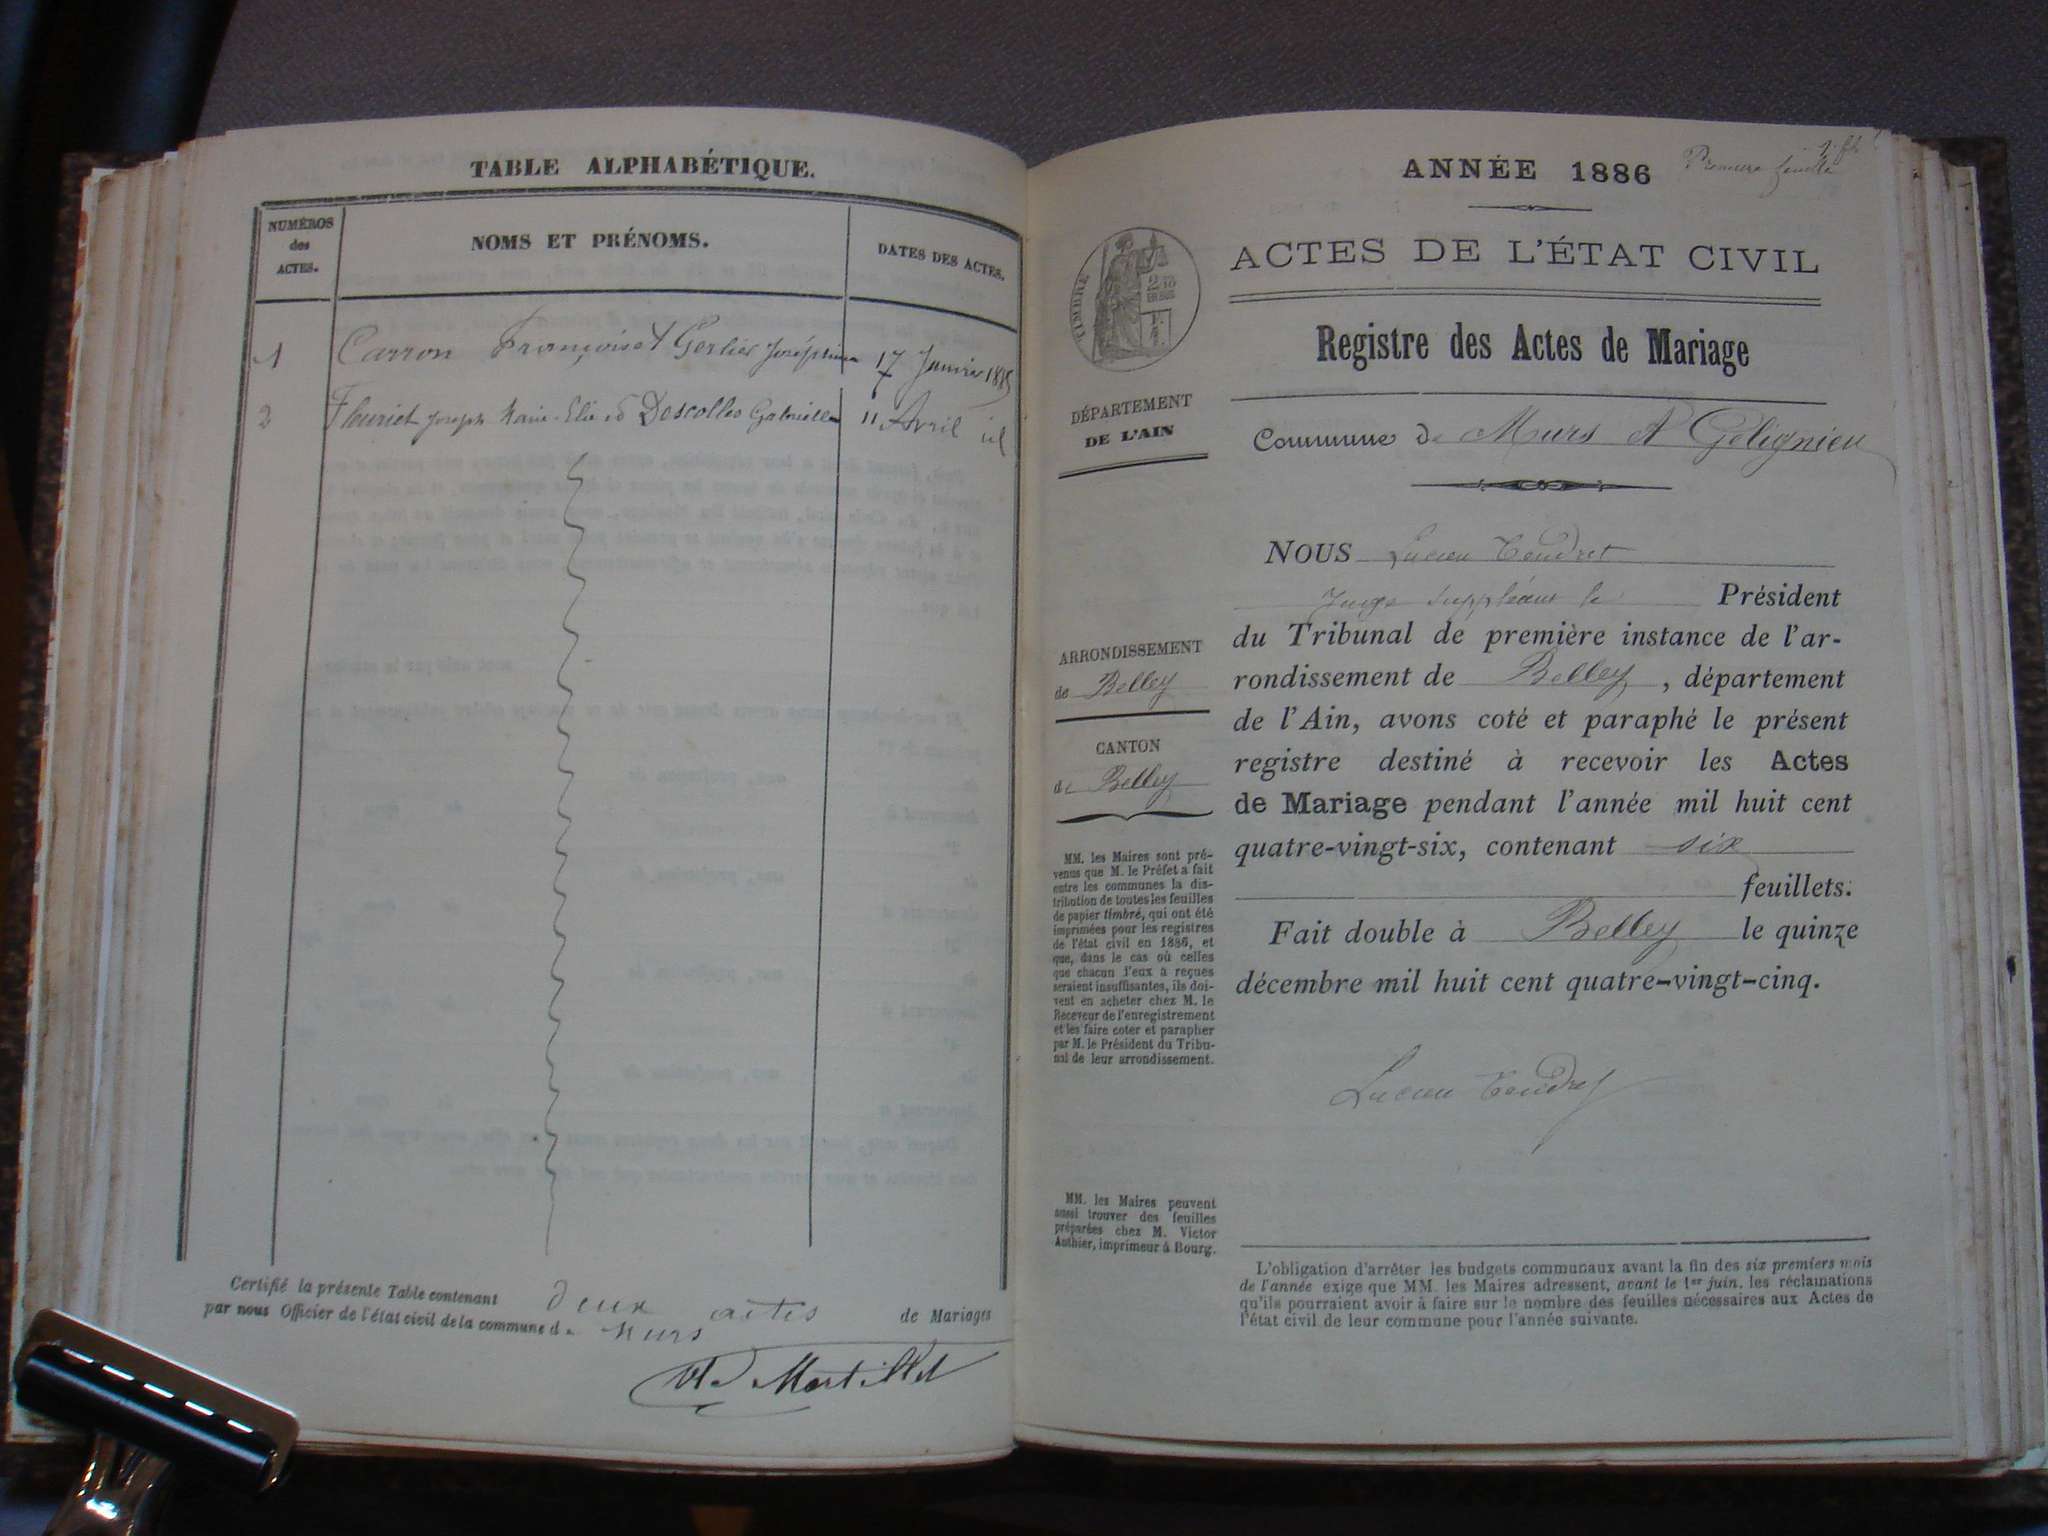 TABLE ALPHABÉTIQUE.
NUMÉROS
des
ACTES.
NOMS ET PRÉNOMS.
DATES DES ACTES.
1 Carron François et Gerlier Joséphine 17 Janvier 1885
2 Fleuriet Joseph Marie Elie et Descolles Gabrielle 11 Avril id
Certifié la présente Table contenant deux actes de Mariages
par nous Officier de l'état civil de la commune de Murs
de Mortillet
ANNÉE 1886
Première feuille
ACTES DE L'ÉTAT CIVIL
TIMBRE
Registre des Actes de Mariage
DÉPARTEMENT
DE L'AIN
Commune de Murs et Gélignieu
NOUS Lucien Coudret
Juge suppléant le Président
du Tribunal de première instance de l'ar-
rondissement de Belley, département
de l'Ain, avons coté et paraphé le présent
registre destiné à recevoir les Actes
de Mariage pendant l'année mil huit cent
quatre-vingt-six, contenant six
feuillets.
Fait double à Belley le quinze
décembre mil huit cent quatre-vingt-cinq.
Lucien Coudret
ARRONDISSEMENT
de Belley
CANTON
de Belley
MM. les Maires sont pré-
venus que M. le Préfet a fait
entre les communes la dis-
tribution de toutes les feuilles
de papier timbré, qui ont été
imprimées pour les registres
de l'état civil en 1886, et
que, dans le cas où celles
que chacun d'eux a reçues
seraient insuffisantes, ils doi-
vent en acheter chez M. le
Receveur de l'enregistrement
et les faire coter et parapher
par M. le Président du Tribu-
nal de leur arrondissement.
MM. les Maires peuvent
aussi trouver des feuilles
préparées chez M. Victor
Authier, imprimeur à Bourg.
L'obligation d'arrêter les budgets communaux avant la fin des six premiers mois
de l'année exige que MM. les Maires adressent, avant le 1er juin, les réclamations
qu'ils pourraient avoir à faire sur le nombre des feuilles nécessaires aux Actes de
l'état civil de leur commune pour l'année suivante.